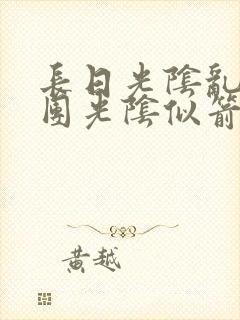 長日光陰亂
園光陰似箭
黃越